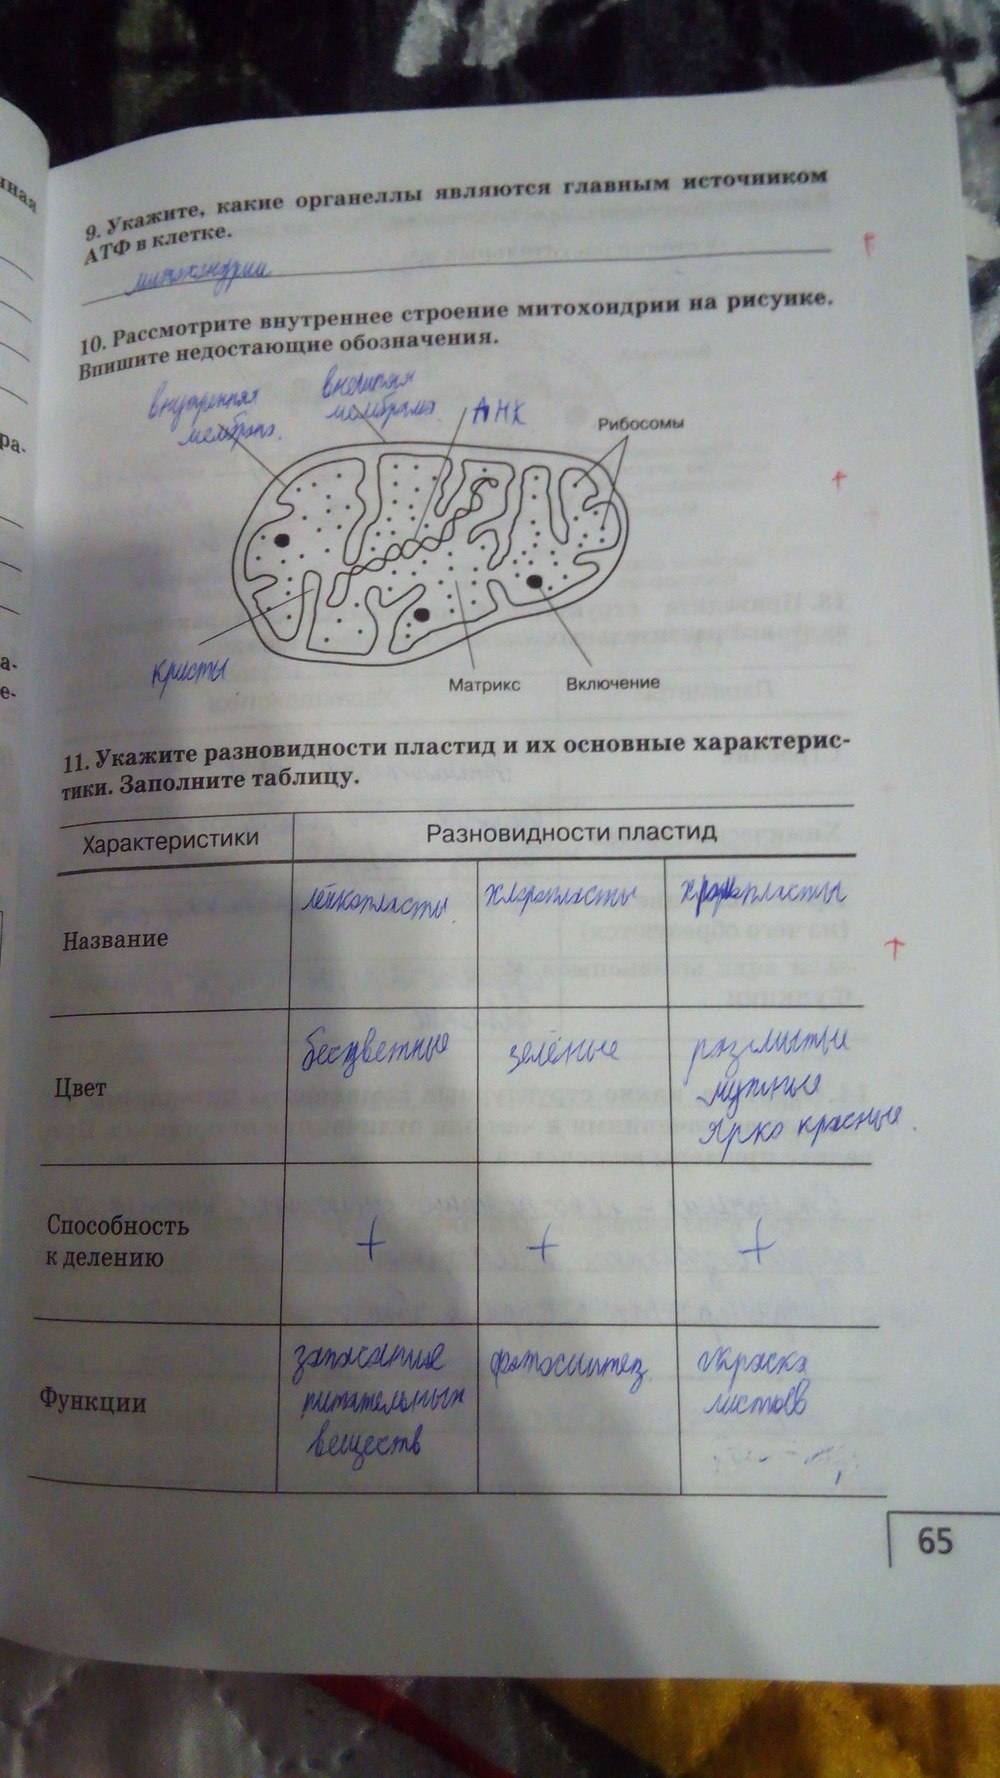 нная
9. Укажите, какие органеллы являются главным источником
АТФ в клетке.
митохондрии
10. Рассмотрите внутреннее строение митохондрии на рисунке.
Впишите недостающие обозначения.
внутренняя
мембрана.
внешняя
мембрана
ДНК
Рибосомы
ра-
кристы
Матрикс
Включение
а-
е-
11. Укажите разновидности пластид и их основные характерис-
тики. Заполните таблицу.
Характеристики
Разновидности пластид
Название
лейкопласты
хлоропласты
хромопласты
Цвет
бесцветные
зелёные
мутные
ярко красные.
Способность
к делению
+
+
+
Функции
запасание
питательных
веществ
фотосинтез
окраска
листьев
65